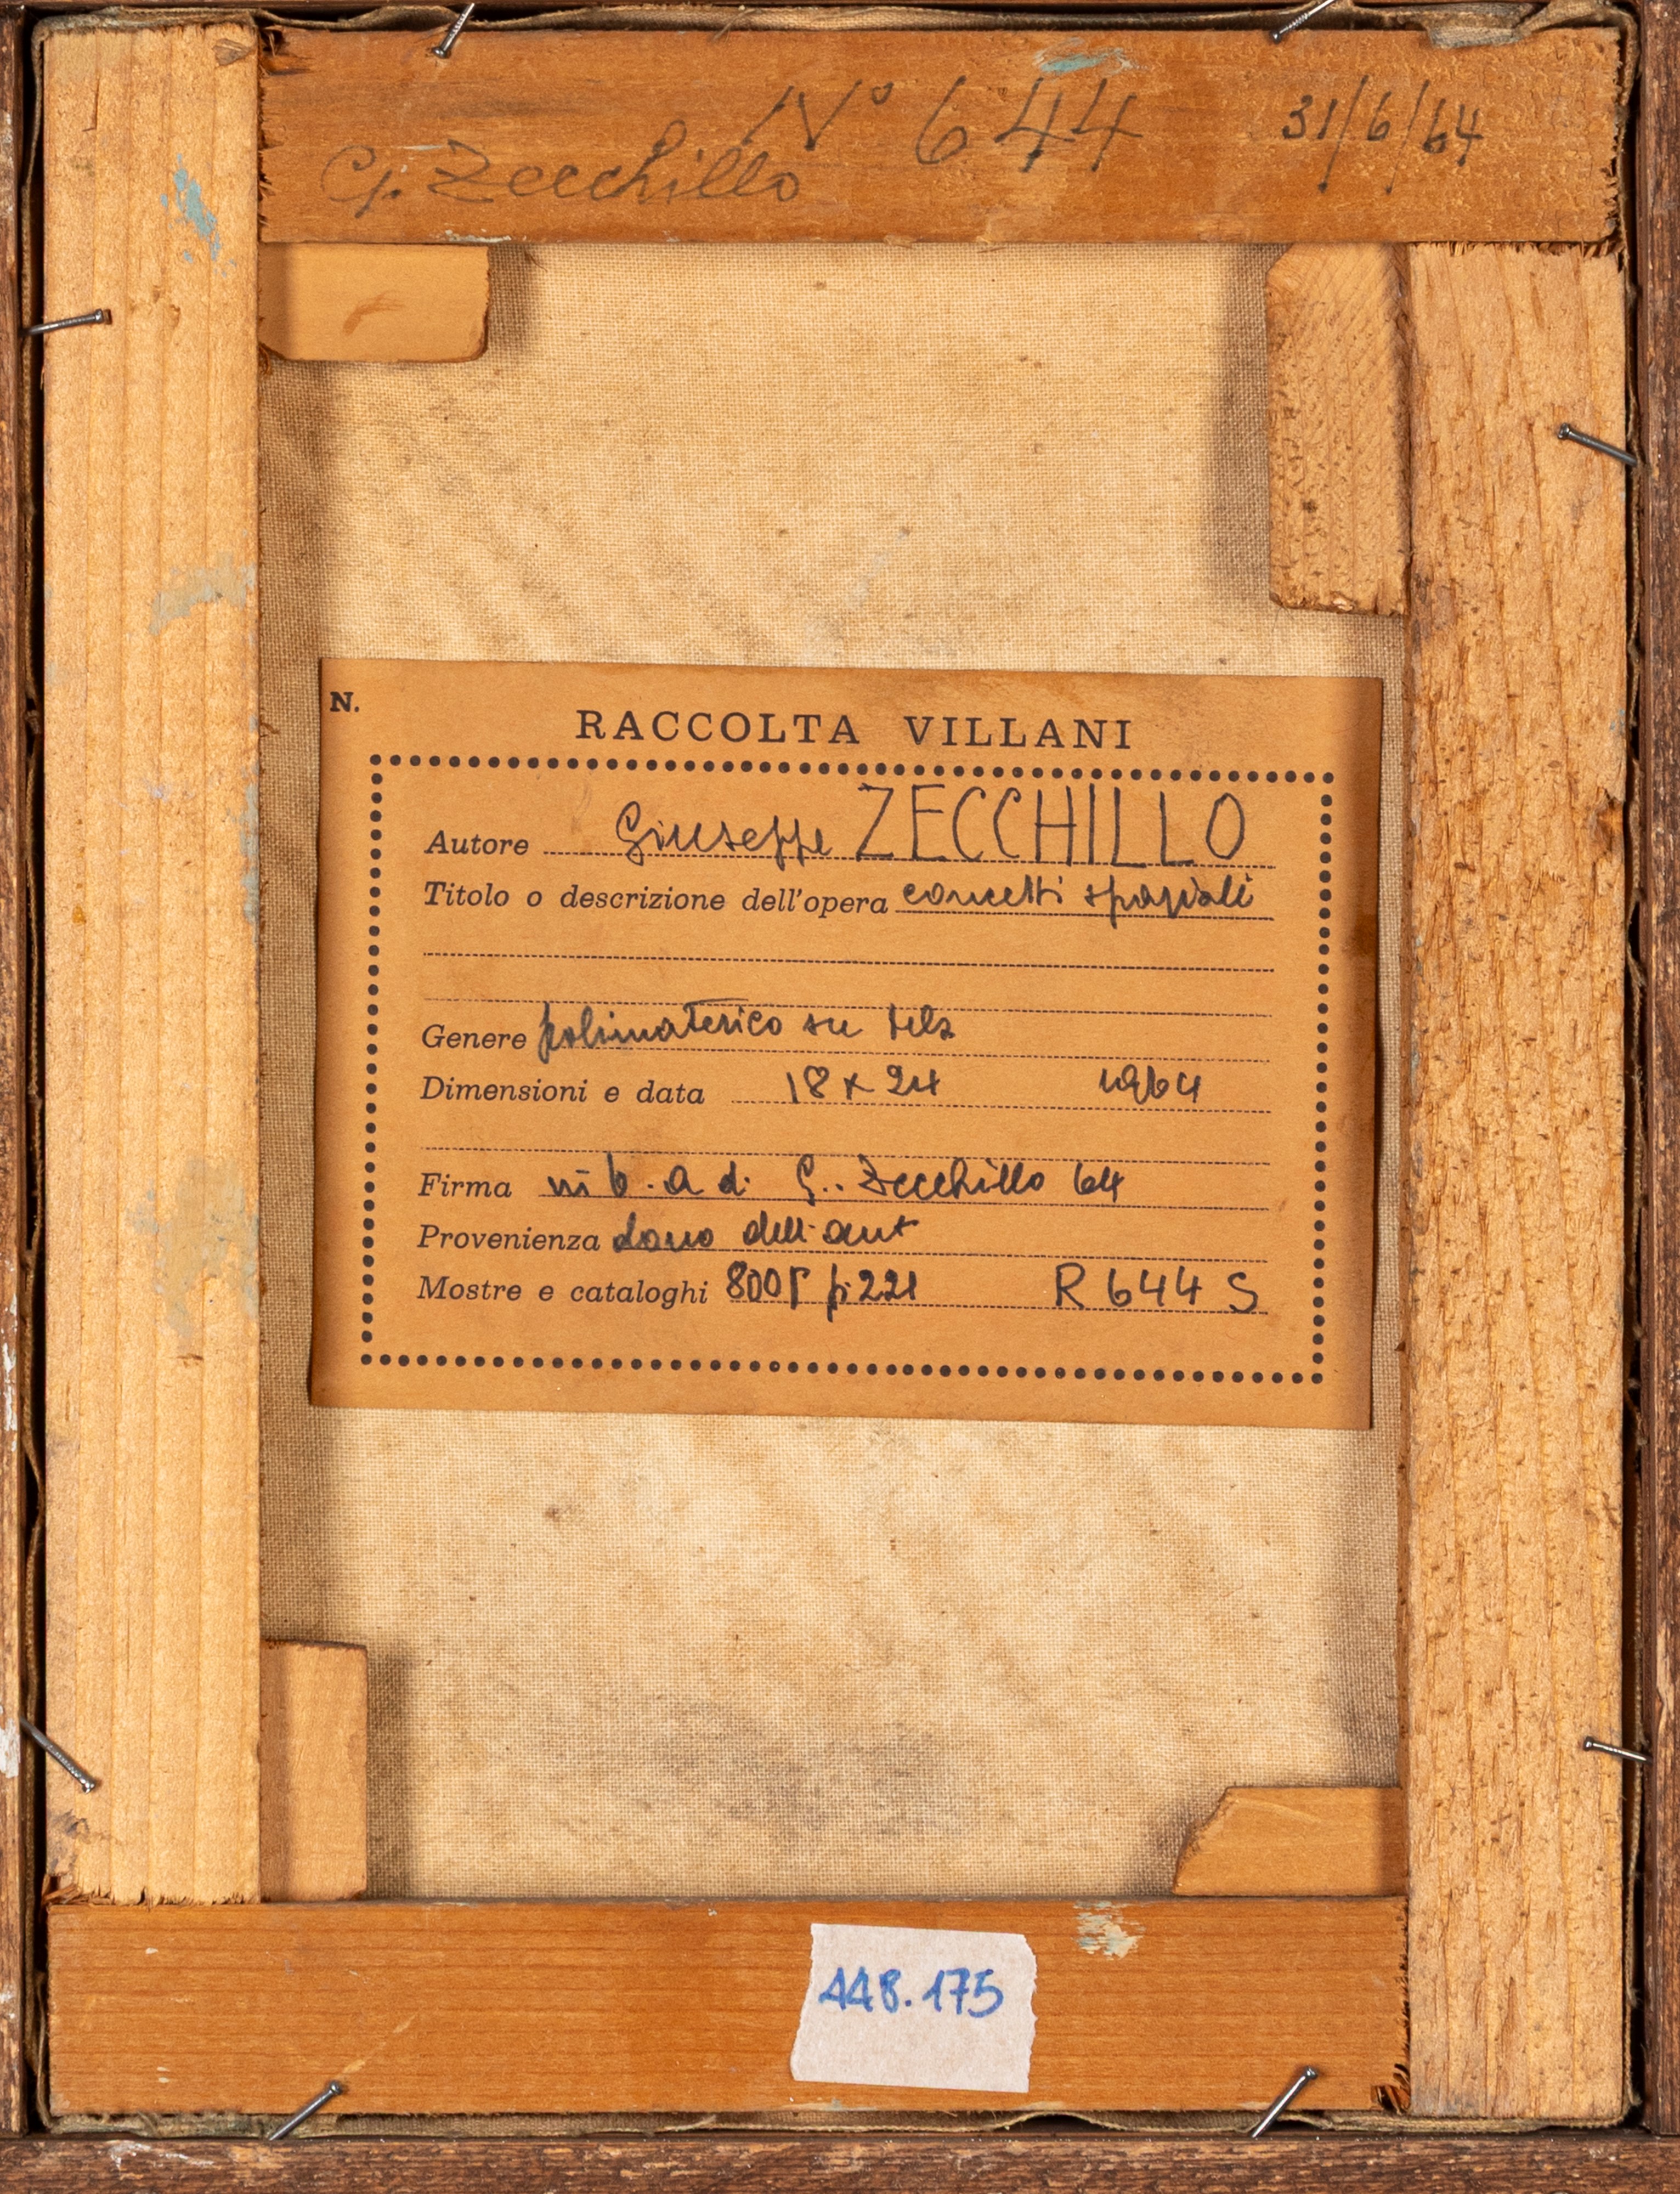 N° 644 31/6/64
G. Zecchillo
N.
RACCOLTA VILLANI
Autore Giuseppe ZECCHILLO
Titolo o descrizione dell'opera concetti spaziali
Genere polimaterico su tela
Dimensioni e data 18 x 24 1964
Firma in b. a d. G. Zecchillo 64
Provenienza dono dell'aut
Mostre e cataloghi p. 221 R 644 S
448.175